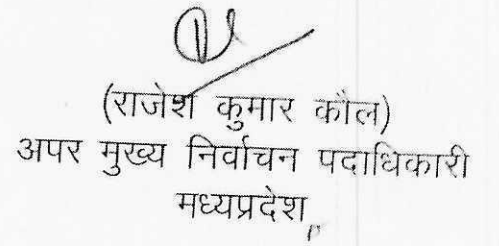 (राजेश कुमार कौल)
अपर मुख्य निर्वाचन पदाधिकारी
मध्यप्रदेश